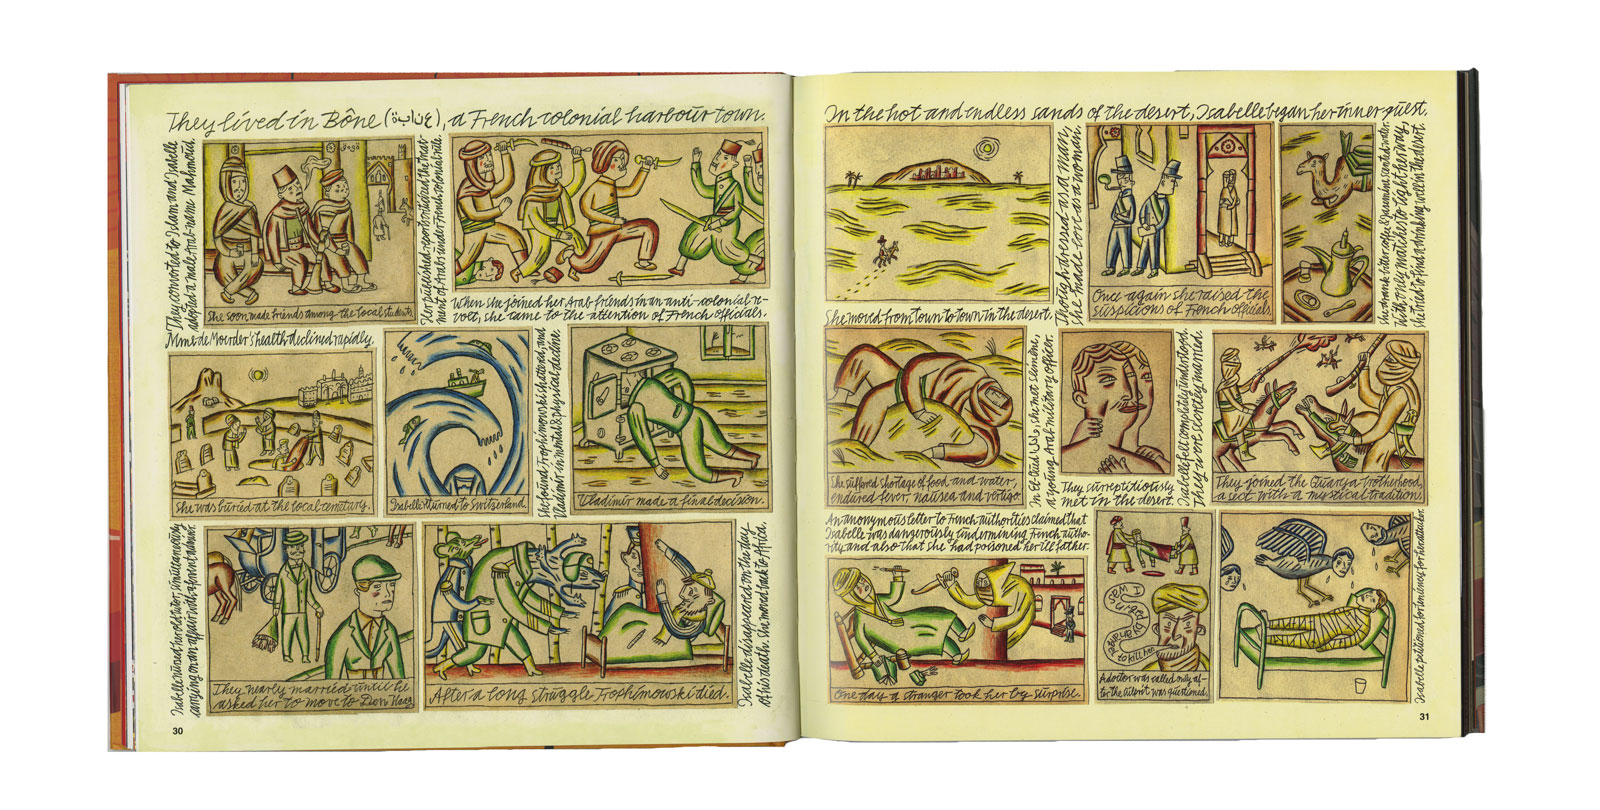 They lived in Bône (عنابة), a French colonial harbour town.
They converted to Islam and Isabelle
adopted a male Arab name Mahmoud.
She soon made friends among the local students.
Her published reports criticized the treat-
ment of Arabs under French colonial rule.
When she joined her Arab friends in an anti-colonial re-
volt, she came to the attention of French officials.
Mme de Moerder's health declined rapidly.
She was buried at the local cemetary.
Isabelle returned to Switzerland.
She found Trophimowski shattered, and
Vladimir in mental & physical decline
Vladimir made a final decision.
Isabelle nursed her old tutor, simultaneously
carrying on an affair with a former admirer.
They nearly married until he
asked her to move to Den Haag
After a long struggle Trophimowski died.
Isabelle disappeared on the day
of his death. She moved back to Africa.
30
In the hot and endless sands of the desert, Isabelle began her inner quest.
She moved from town to town in the desert.
Though dressed as a man,
she made love as a woman.
Once again she raised the
suspicions of French officials.
She drank bitter coffee & Jasmine scented water.
With only matches to light her way,
she tried to find a drinking well in the desert.
She suffered shortage of food and water,
endured fever, nausea and vertigo.
In El Oued, she met Slimène,
a young Arab military officer.
They surreptitiously
met in the desert.
Isabelle felt completely understood.
They were secretly married.
They joined the Quadrya brotherhood,
a sect with a mystical tradition.
An anonymous letter to French authorities claimed that
Isabelle was dangerously undermining French autho-
rity and also that she had poisoned her ill father.
One day a stranger took her by surprise.
I was
urged by an angel
to kill her
A doctor was called only af-
ter the culprit was questioned.
Isabelle petitioned for leniency for her attacker.
31